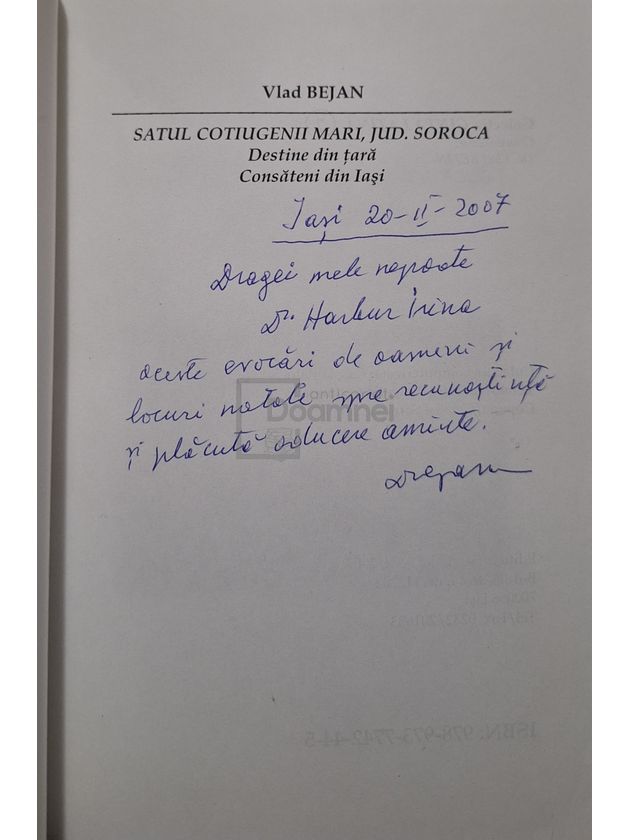 Vlad BEJAN
SATUL COTIUGENII MARI, JUD. SOROCA
Destine din țară
Consăteni din Iași
Iași 20-II-2007
Dragei mele nepoate
Dr. Harbur Irina
aceste evocări de oameni și
locuri natale spre recunoștință
și plăcută aducere aminte.
anticariat
Doamnei
ISBN: 978-973-7742-44-5